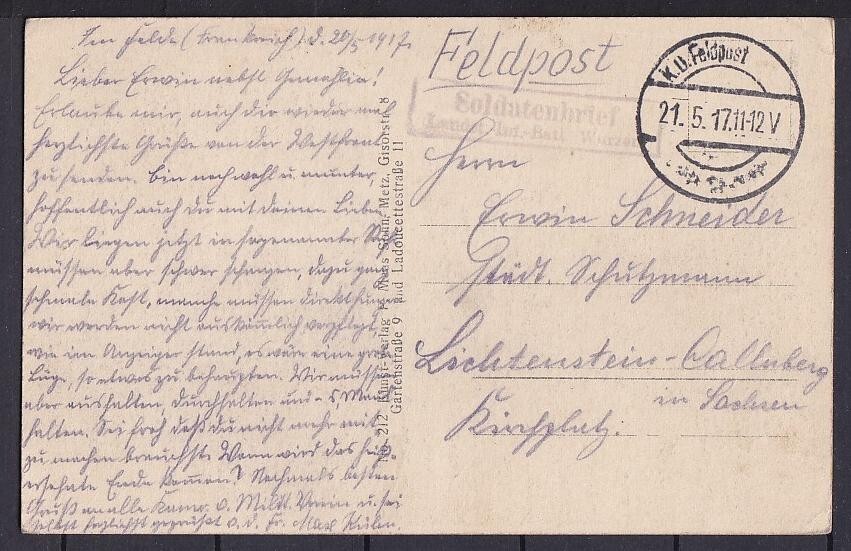 Im Felde (Frankreich) d. 20/5 1917.
Lieber Erwin nebst Gemahlin!
Erlaube mir, auch dir wieder mal
herzlichste Grüße von der Westfront
zu senden. Bin noch wohl u. munter,
hoffentlich auch du mit deinen Lieben.
Wir liegen jetzt in sogenannter
müssen aber schwer schanzen, dazu ganz
schmale Kost, manche müssen direkt hungern
wir werden nicht auskömmlich verpflegt,
wie im Anzeiger stand, es wäre eine große
Lüge, so etwas zu behaupten. Wir müssen
aber aushalten, durchhalten und s. Maul
halten. Sei froh daß du nicht mehr mit
zu machen brauchst. Wann wird das heiß-
ersehnte Ende kommen? Nochmals besten
Gruß an alle Kamr. v. Milit. Verein u. sei
selbst herzlichst gegrüßt v. d. Fr. Max
212 Kunst-Verlag Hans Metz, Gisorstr. 8
Gartenstraße 9 und Ladoucettestraße 11
Feldpost
Soldatenbrief
Landst. Inf.-Batl. Wurzen
K.D. Feldpost
21. 5. 17. 11-12 V
Herrn
Erwin Schneider
Städt. Schutzmann
Lichtenstein-Callnberg
in Sachsen
Kirchplatz.